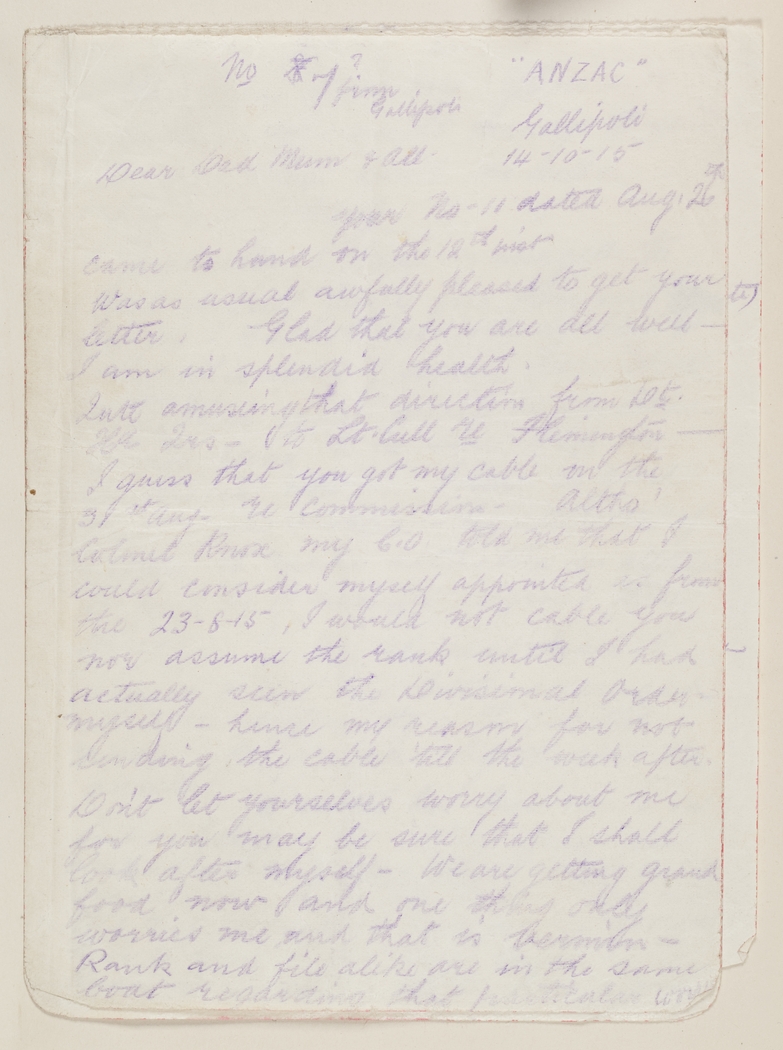 No 8 of ? "ANZAC"
from
Gallipoli
Gallipoli
Dear Dad Mum & All. 14-10-15
your No-11 dated Aug. 26th
came to hand on the 12th inst
Was as usual awfully pleased to get your
letter. Glad that you are all well —
I am in splendid health.
amusing that direction from
Hd Qrs - to Lt. Cull re Flemington —
I guess that you got my cable on the
31st Aug. re Commission - Altho'
Colonel Knox my C.O. told me that I
could consider myself appointed as from
the 23-8-15, I would not cable you
nor assume the rank until I had
actually seen the Divisional Order
myself - hense my reason for not
sending the cable 'till the week after.
Don't let yourselves worry about me
for you may be sure that I shall
look after myself - We are getting grand
food now and one thing only
worries me and that is vermin -
Rank and file alike are in the same
boat regarding that particular worry